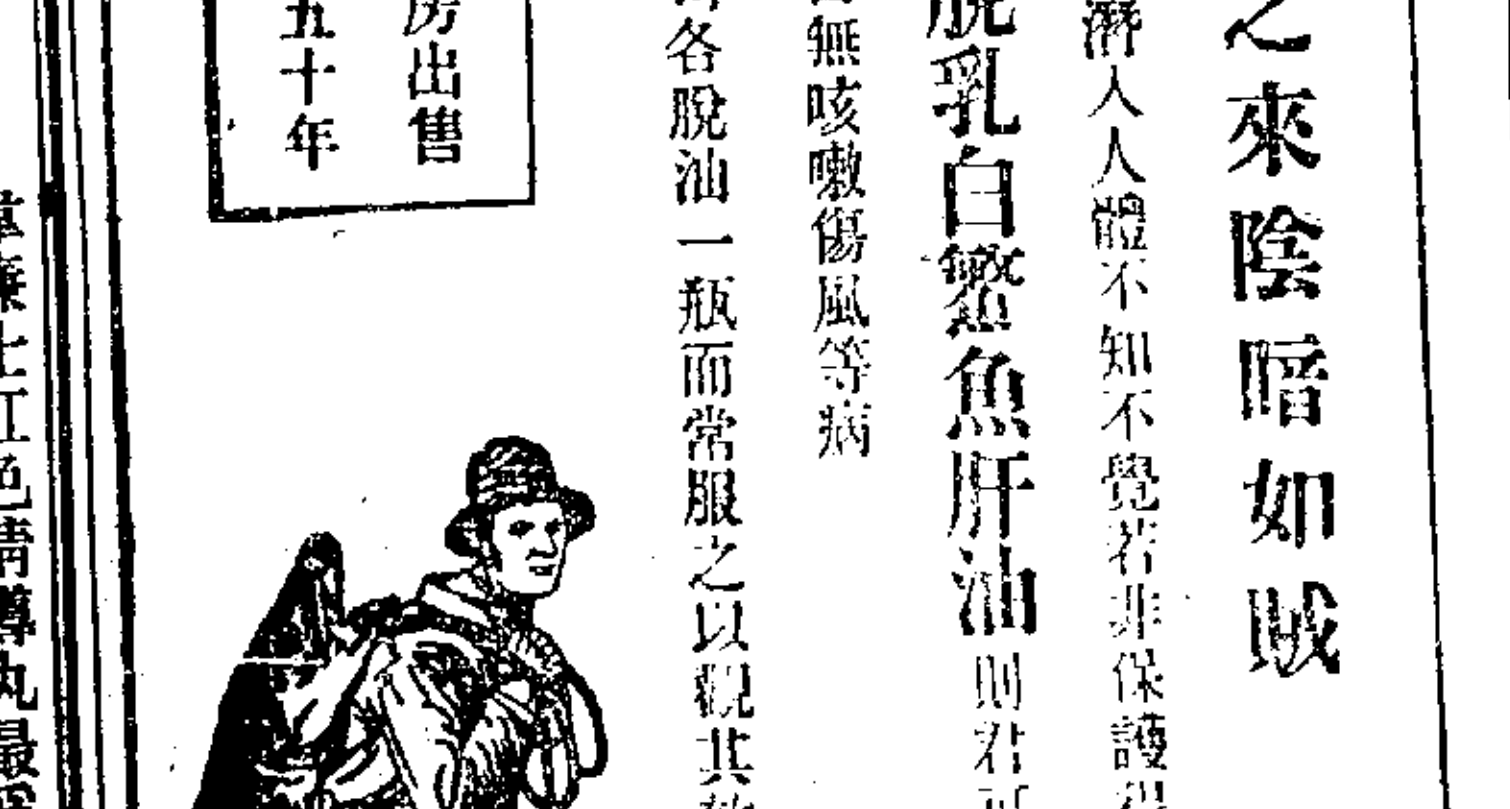 之來陰暗如賊
潛人人體不知不覺若非保護程
脫乳白鰵魚肝油則君可
無咳嗽傷風等病
各脫油一瓶而常服之以觀其效
房出售
五十年
紅色清導丸最